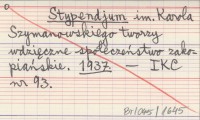 Stypendjum im. Karola
Szymanowskiego tworzy
wdzięczne społeczeństwo zako-
piańskie. 1937 — IKC
nr 93.